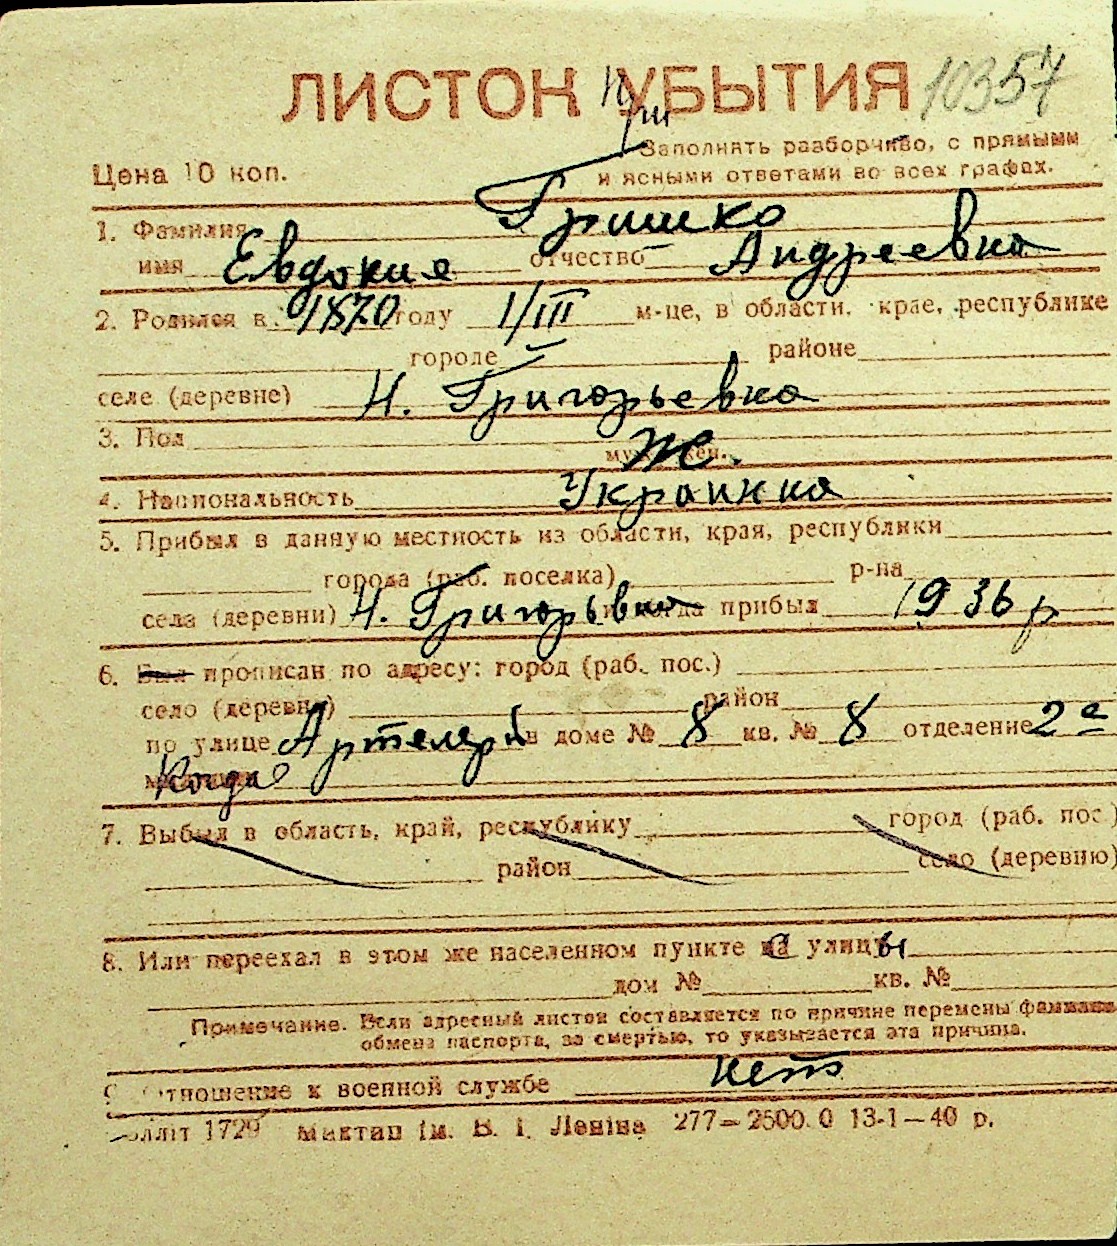 ЛИСТОК УБЫТИЯ 10357
Заполнять разборчиво, с прямыми
Цена 10 коп. и ясными ответами во всех графах.
1. Фамилия Гришко
имя Евдокия отчество Андреевна
2. Родился в 1870 году 1/III м-це, в области, крае, республике
городе районе
селе (деревне) Н. Григорьевка
3. Пол Ж.
4. Национальность Украинка
5. Прибыл в данную местность из области, края, республики
города (раб. поселка) р-на
села (деревни) Н. Григорьвка прибыл 1936 р
6. Был прописан по адресу: город (раб. пос.)
село (деревня) район
по улице в доме № 8 кв. № 8 отделение 2е
Когда
7. Выбыл в область, край, республику город (раб. пос.)
район село (деревню)
8. Или переехал в этом же населенном пункте с улицы
дом № кв. №
Примечание. Если адресный листок составляется по причине перемены фамилии
обмена паспорта, за смертью, то указывается эта причина.
9. Отношение к военной службе нет
1729 Миктап ім. В. І. Леніна 277—2500.0 13-1—40 р.